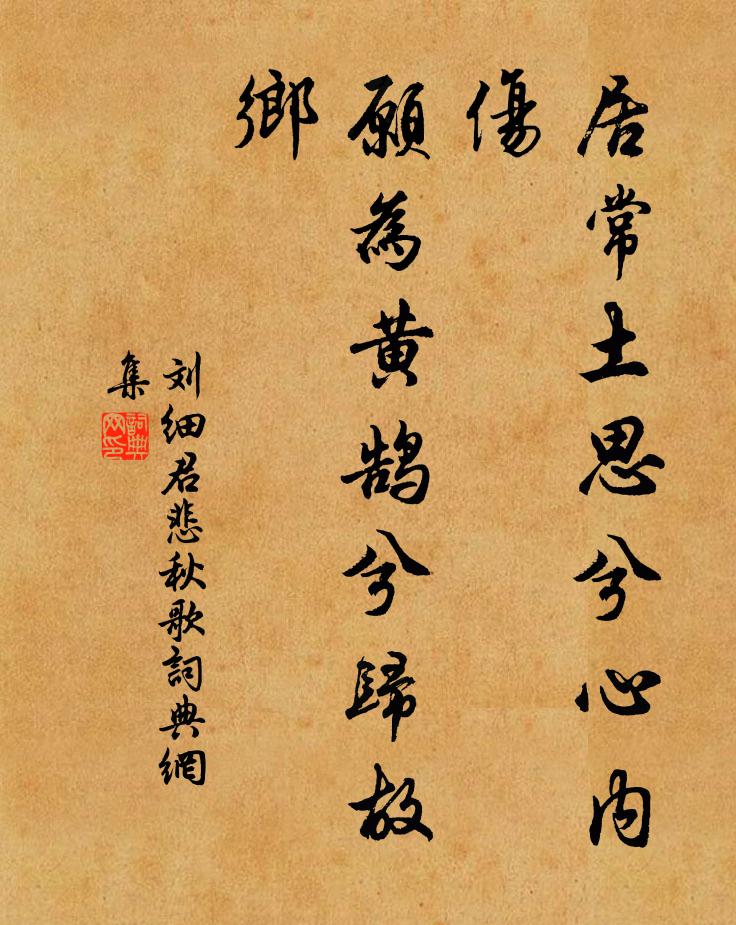 居常土思兮心内
傷
願為黄鵠兮歸故
鄉
刘细君悲秋歌詞典網
集
詞典
网印